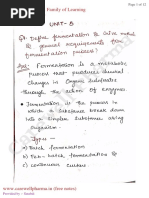 Family of Learning
Page 1 of 12
UNIT-5
Q. Define fermentation & Give
general requirements for
fermentation process?
Ans:- Fermentation is a metabolic
process that produces chemical
changes in Organic Substrates
through the action of enzymes.
Fermentation is the process in
which a substance break down
into a simpler substance
organism.
Types:-
a) Batch fermentation
b) Fed-batch fermentation
c) Continuous "
www.carewellpharma.in (free notes)